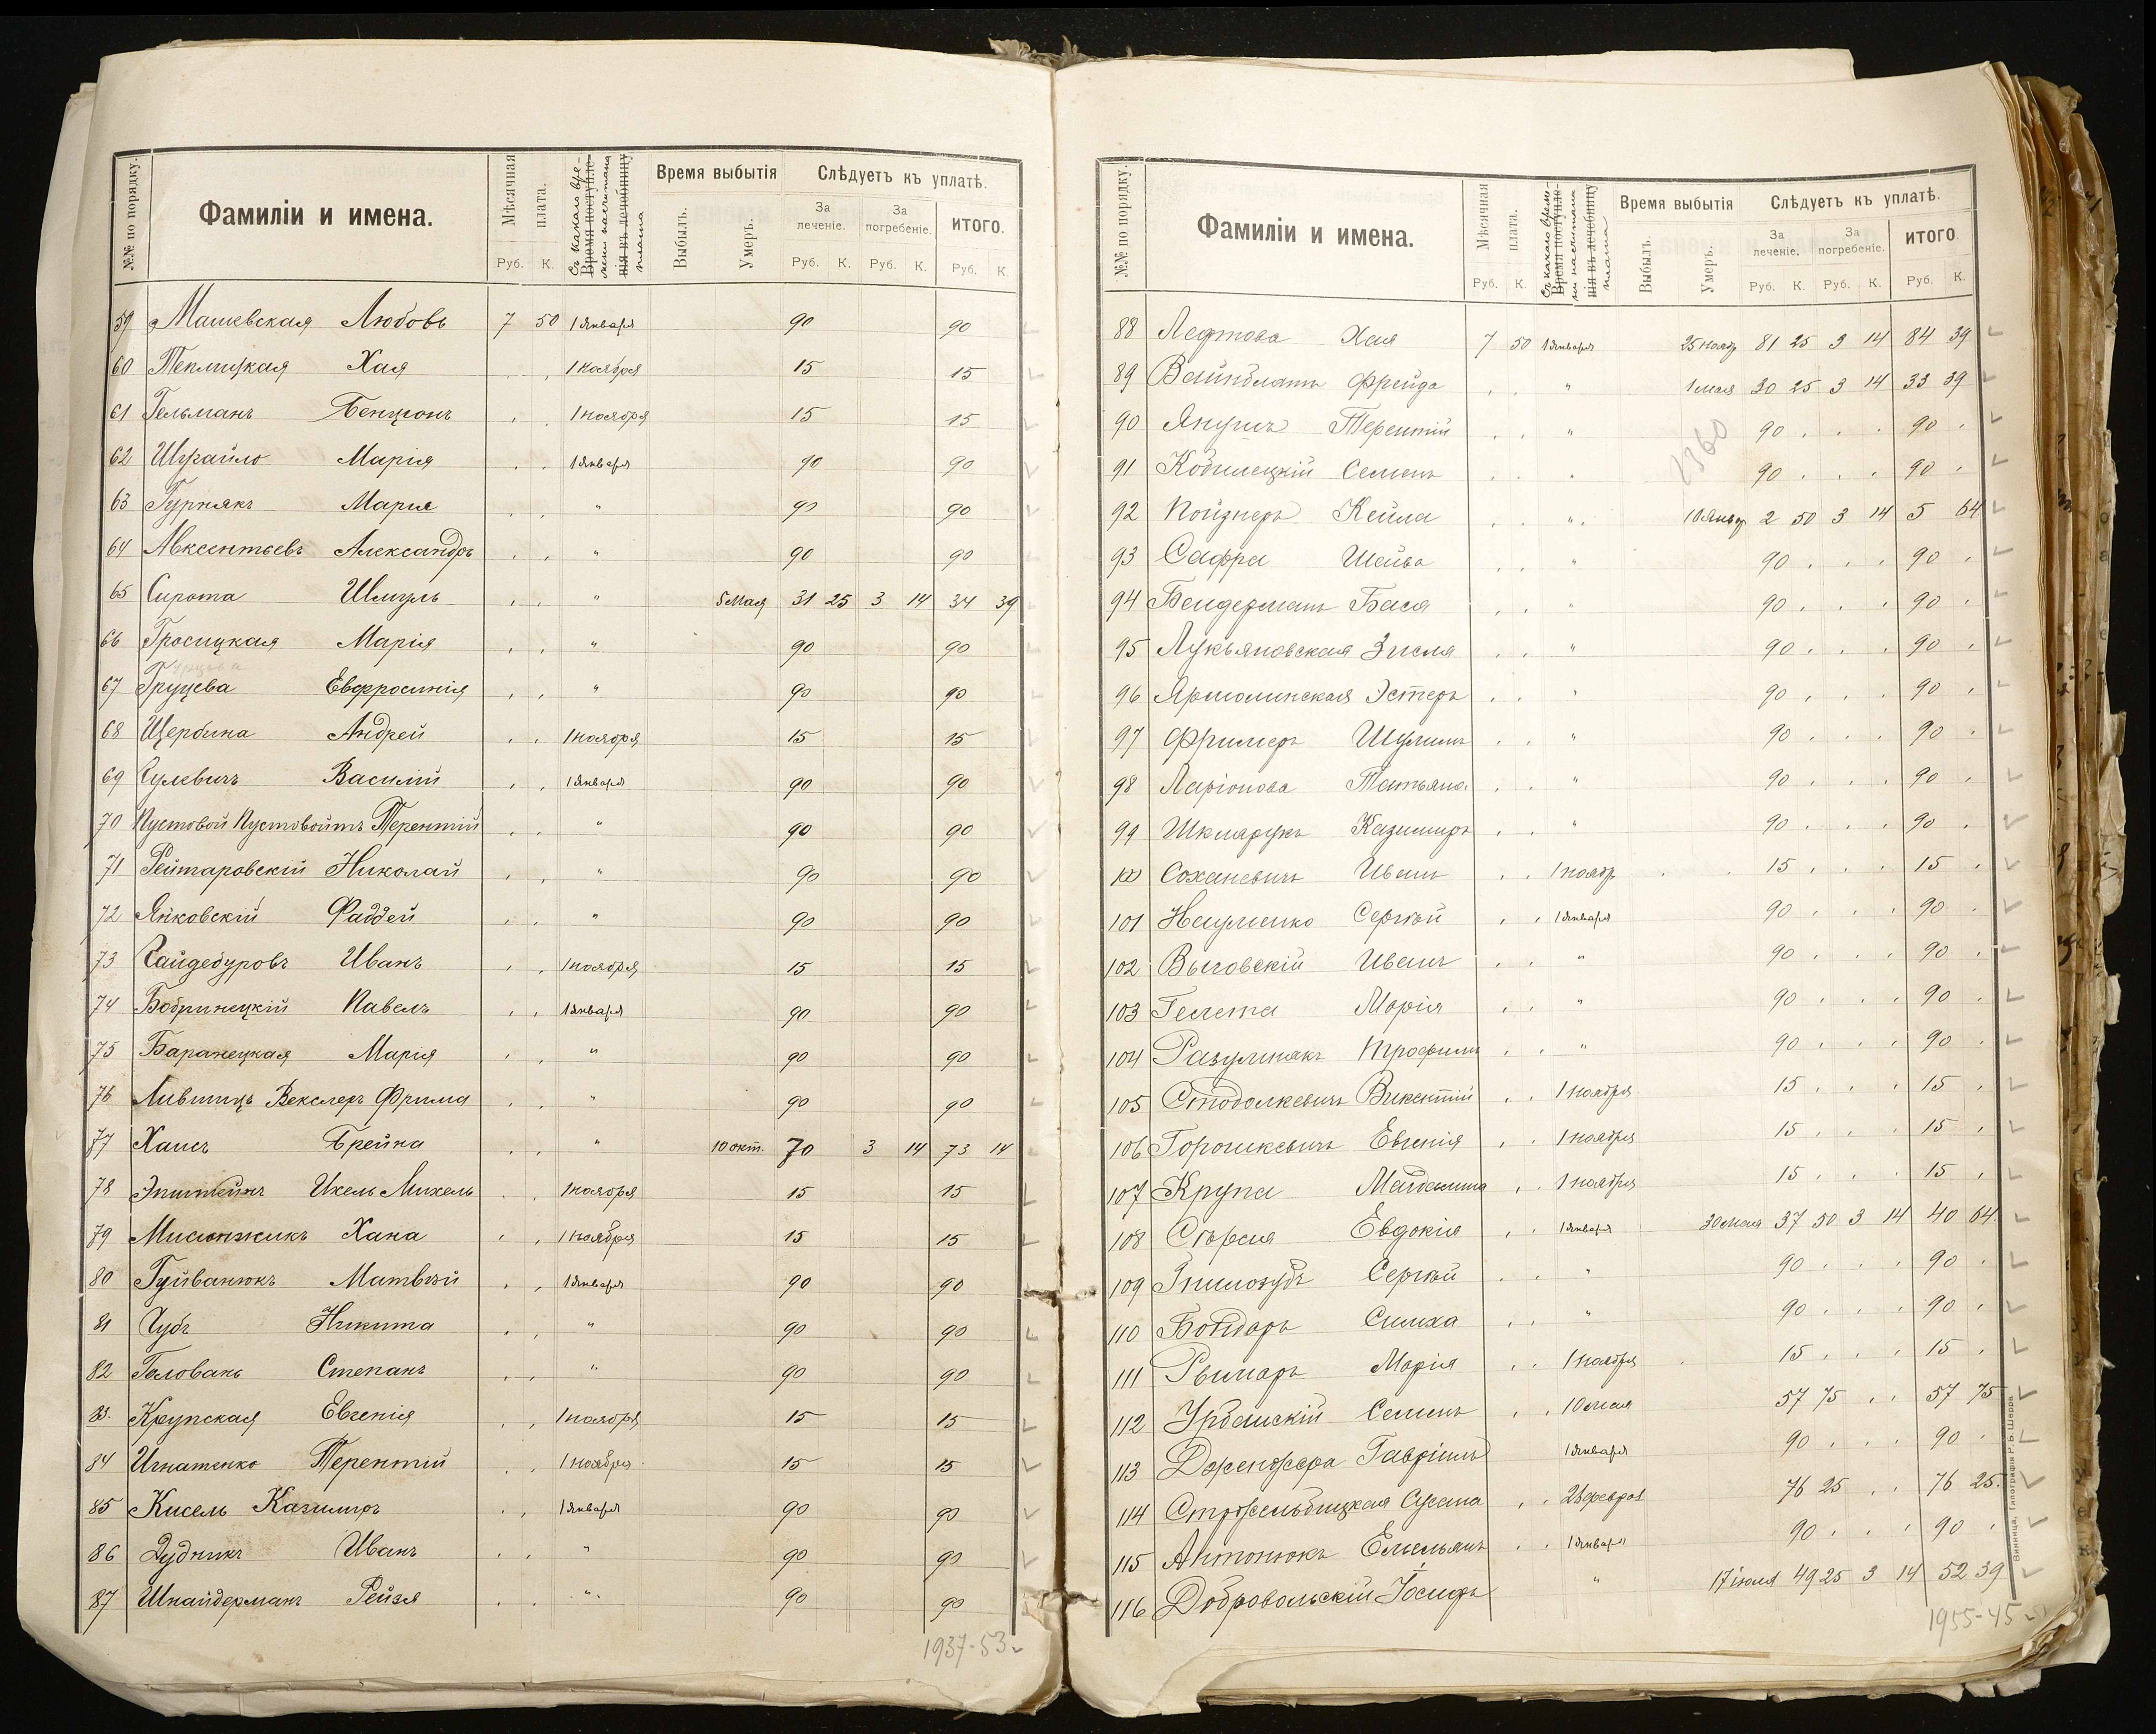 №№ по порядку.
Фамиліи и имена.
Мѣсячная плата.
Съ какого времени насчитана плата
Время поступленія въ лечебницу
Время выбытія
Выбылъ.
Умеръ.
Слѣдуетъ къ уплатѣ.
За леченіе.
За погребеніе.
ИТОГО.
Руб. К. Руб. К. Руб. К. Руб. К.
59 Машевская Любовь 7 50 1 Января 90 90
60 Теплицкая Хая . . 1 ноября 15 15
61 Гельманъ Бенціонъ . . 1 ноября 15 15
62 Шурайло Марія . . 1 Января 90 90
63 Гурнякъ Мария . . " 90 90
64 Авксентьевъ Александръ . . " 90 90
65 Сирота Шмуль . . " 5 Мая 31 25 3 14 34 39
66 Гросицкая Марія . . " 90 90
67 Груцева Евфросинія . . " 90 90
68 Щербина Андрей . . 1 ноября 15 15
69 Гулевичъ Василій . . 1 Января 90 90
70 Пустовой Пустовойтъ Терентій . . " 90 90
71 Рейтаровскій Николай . . " 90 90
72 Янковскій Фаддей . . " 90 90
73 Гайдебуровъ Иванъ . . 1 ноября 15 15
74 Бобринецкій Павелъ . . 1 Января 90 90
75 Баранецкая Марія . . " 90 90
76 Лившицъ Векслеръ Фрима . . " 90 90
77 Хаисъ Брейна . . " 10 окт. 70 3 14 73 14
78 Эпштейнъ Ихель Михель . . 1 ноября 15 15
79 Мисюнжникъ Хана . . 1 ноября 15 15
80 Гуйванюкъ Матвѣй . . 1 Января 90 90
81 Чубъ Никита . . " 90 90
82 Головань Степанъ . . " 90 90
83. Крупская Евгенія . . 1 ноября 15 15
84 Игнатенко Терентій . . 1 ноября 15 15
85 Кисель Казимиръ . . 1 Января 90 90
86 Дудникъ Иванъ . . " 90 90
87 Шнайдерманъ Рейзя . . " 90 90
1937-53
№№ по порядку.
Фамиліи и имена.
Мѣсячная плата.
Съ какого времени насчитана плата
Время поступленія въ лечебницу
Время выбытія
Выбылъ.
Умеръ.
Слѣдуетъ къ уплатѣ.
За леченіе.
За погребеніе.
ИТОГО.
Руб. К. Руб. К. Руб. К. Руб. К.
88 Хая 7 50 1 Января 25 нояб 81 25 3 14 84 39
89 Вайнблатъ Фрейда . . " 1 мая 30 25 3 14 33 39
90 Янушъ Терентій . . " 90 . . . 90 .
1360
91 Кобылецкій Семенъ . . " 90 . . . 90 .
92 Пойзнеръ Кейла . . " 10 Янв 2 50 3 14 5 64
93 Сафра Шейва . . " 90 . . . 90 .
94 Бендерманъ Бася . . " 90 . . . 90 .
95 Лукьяновская Зисля . . " 90 . . . 90 .
96 Ярмолинская Эстеръ . . " 90 . . . 90 .
97 Фримеръ Шулимъ . . " 90 . . . 90 .
98 Ларіонова Татьяна . . " 90 . . . 90 .
99 Шклярукъ Казимиръ . . " 90 . . . 90 .
100 Соханевичъ Иванъ . . 1 ноябр 15 . . . 15 .
101 Науменко Сергѣй . . 1 Января 90 . . . 90 .
102 Выговскій Иванъ . . " 90 . . . 90 .
103 Гелета Марія . . " 90 . . . 90 .
104 Разумнякъ Трофимъ . . " 90 . . . 90 .
105 Стодолкевичъ Викентій . . 1 ноября 15 . . . 15 .
106 Горошкевичъ Евгенія . . 1 ноября 15 . . . 15 .
107 Крупа Магдалина . . 1 ноября 15 . . . 15 .
108 Евдокія . . 1 Января 30 мая 37 50 3 14 40 64
109 Гнилозубъ Сергѣй . . " 90 . . . 90 .
110 Бондарь Симха . . " 90 . . . 90 .
111 Рымарь Марія . . 1 ноября 15 . . . 15 .
112 Урбанскій Семенъ . . 10 мая 57 75 . . 57 75
113 Дженджера Гавріилъ 1 Января 90 . . . 90 .
114 Сусана . . 76 25 . . 76 25.
115 Антонюкъ Емельянъ . . 1 Января 90 . . . 90 .
116 Добровольскій Іосифъ " 17 іюля 49 25 3 14 52 39
1955-45
Винница, Типографія Р. Б. Шерра